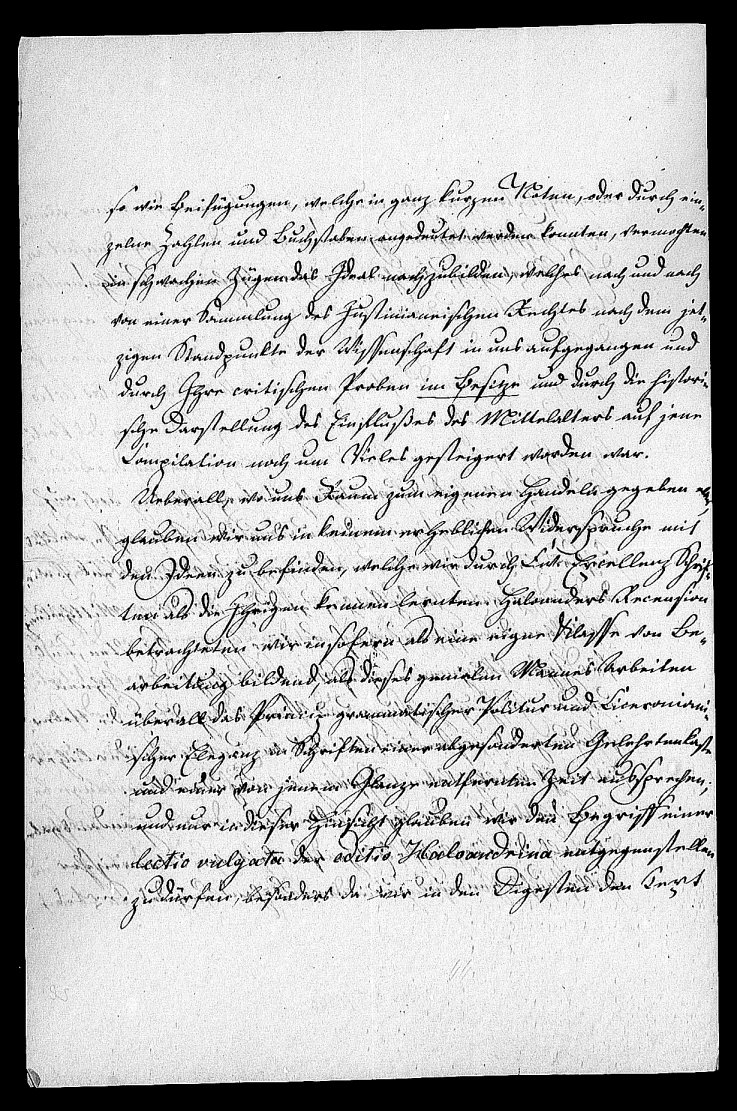 so wie Beifügungen, welche in ganz kurzen Noten, oder durch ein-
zelne Zahlen und Buchstaben angedeutet werden konnten, vermochten
in schwachen Zügen das Ideal nachzubilden, welches nach und nach
von einer Sammlung des Justinianeischen Rechtes nach dem jet-
zigen Standpunkte der Wissenschaft in uns aufgegangen und
durch Ihre critischen Proben im Besitze und durch die histori-
sche Darstellung des Einflußes des Mittelalters auf jene
Compilation noch um Vieles gesteigert worden war.
Ueberall, wo uns Raum zum eigenen Handeln gegeben
glauben wir uns in keinem erheblichen Widerspruche mit
den Ideen zu befinden, welche wir durch Ew. Excellenz Schrif-
ten als die Ihrigen kennen lernten. Haloanders Recension
betrachteten wir insofern als eine eigne Klasse von Be-
arbeitung bildend, als dieses genialen Mannes Arbeiten
überall das Princip grammatischer Politur und Ciceroniani-
scher Eleganz in Schriften einer abgesonderten Gelehrtenkaste
und einer von jenem Glanze entfernten Zeit aussprechen,
und nur in dieser Hinsicht glauben wir den Begriff einer
lectio vulgata der editio Haloandrina entgegenstellen
zu dürfen, besonders da wir in den Digesten den Text